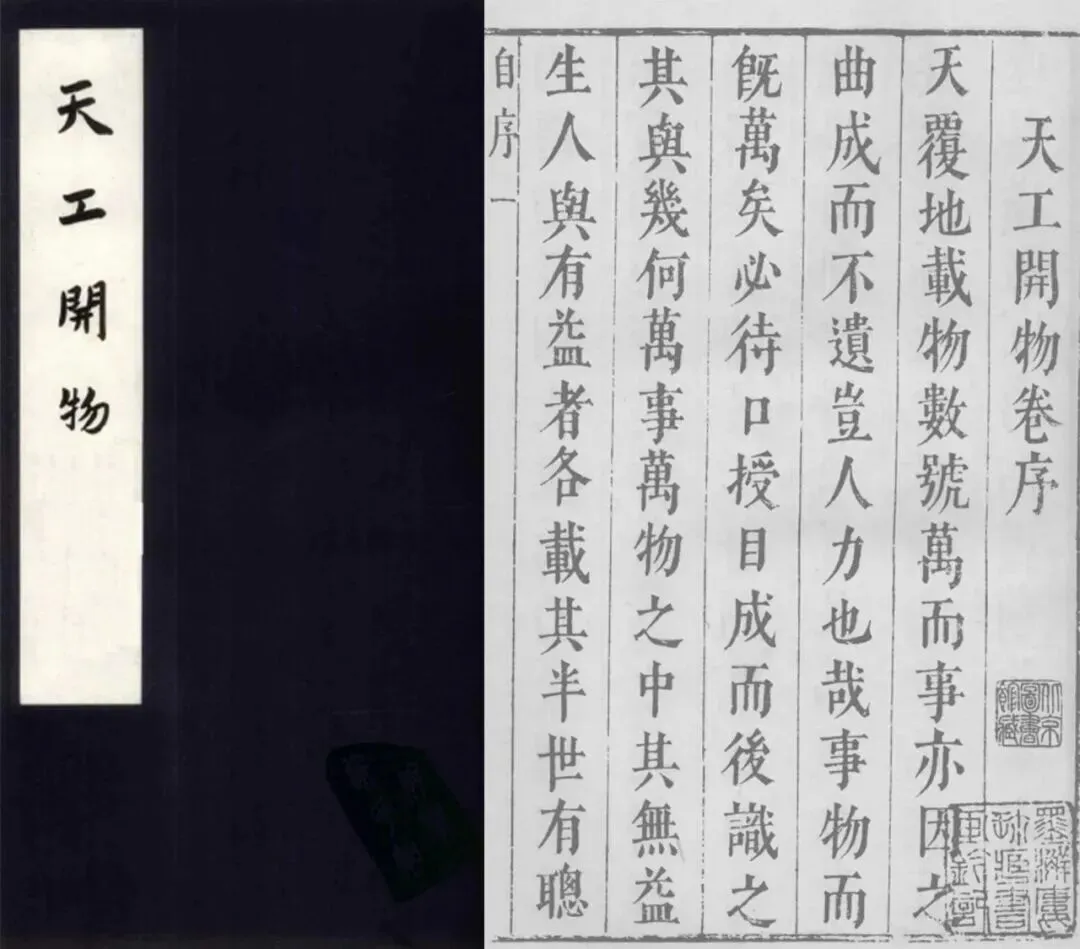 天工開物
天工開物卷序
天覆地載物數號萬而事亦因之
曲成而不遺豈人力也哉事物而
既萬矣必待口授目成而後識之
其與幾何萬事萬物之中其無益
生人與有益者各載其半世有聰
自序一
北京圖書館藏